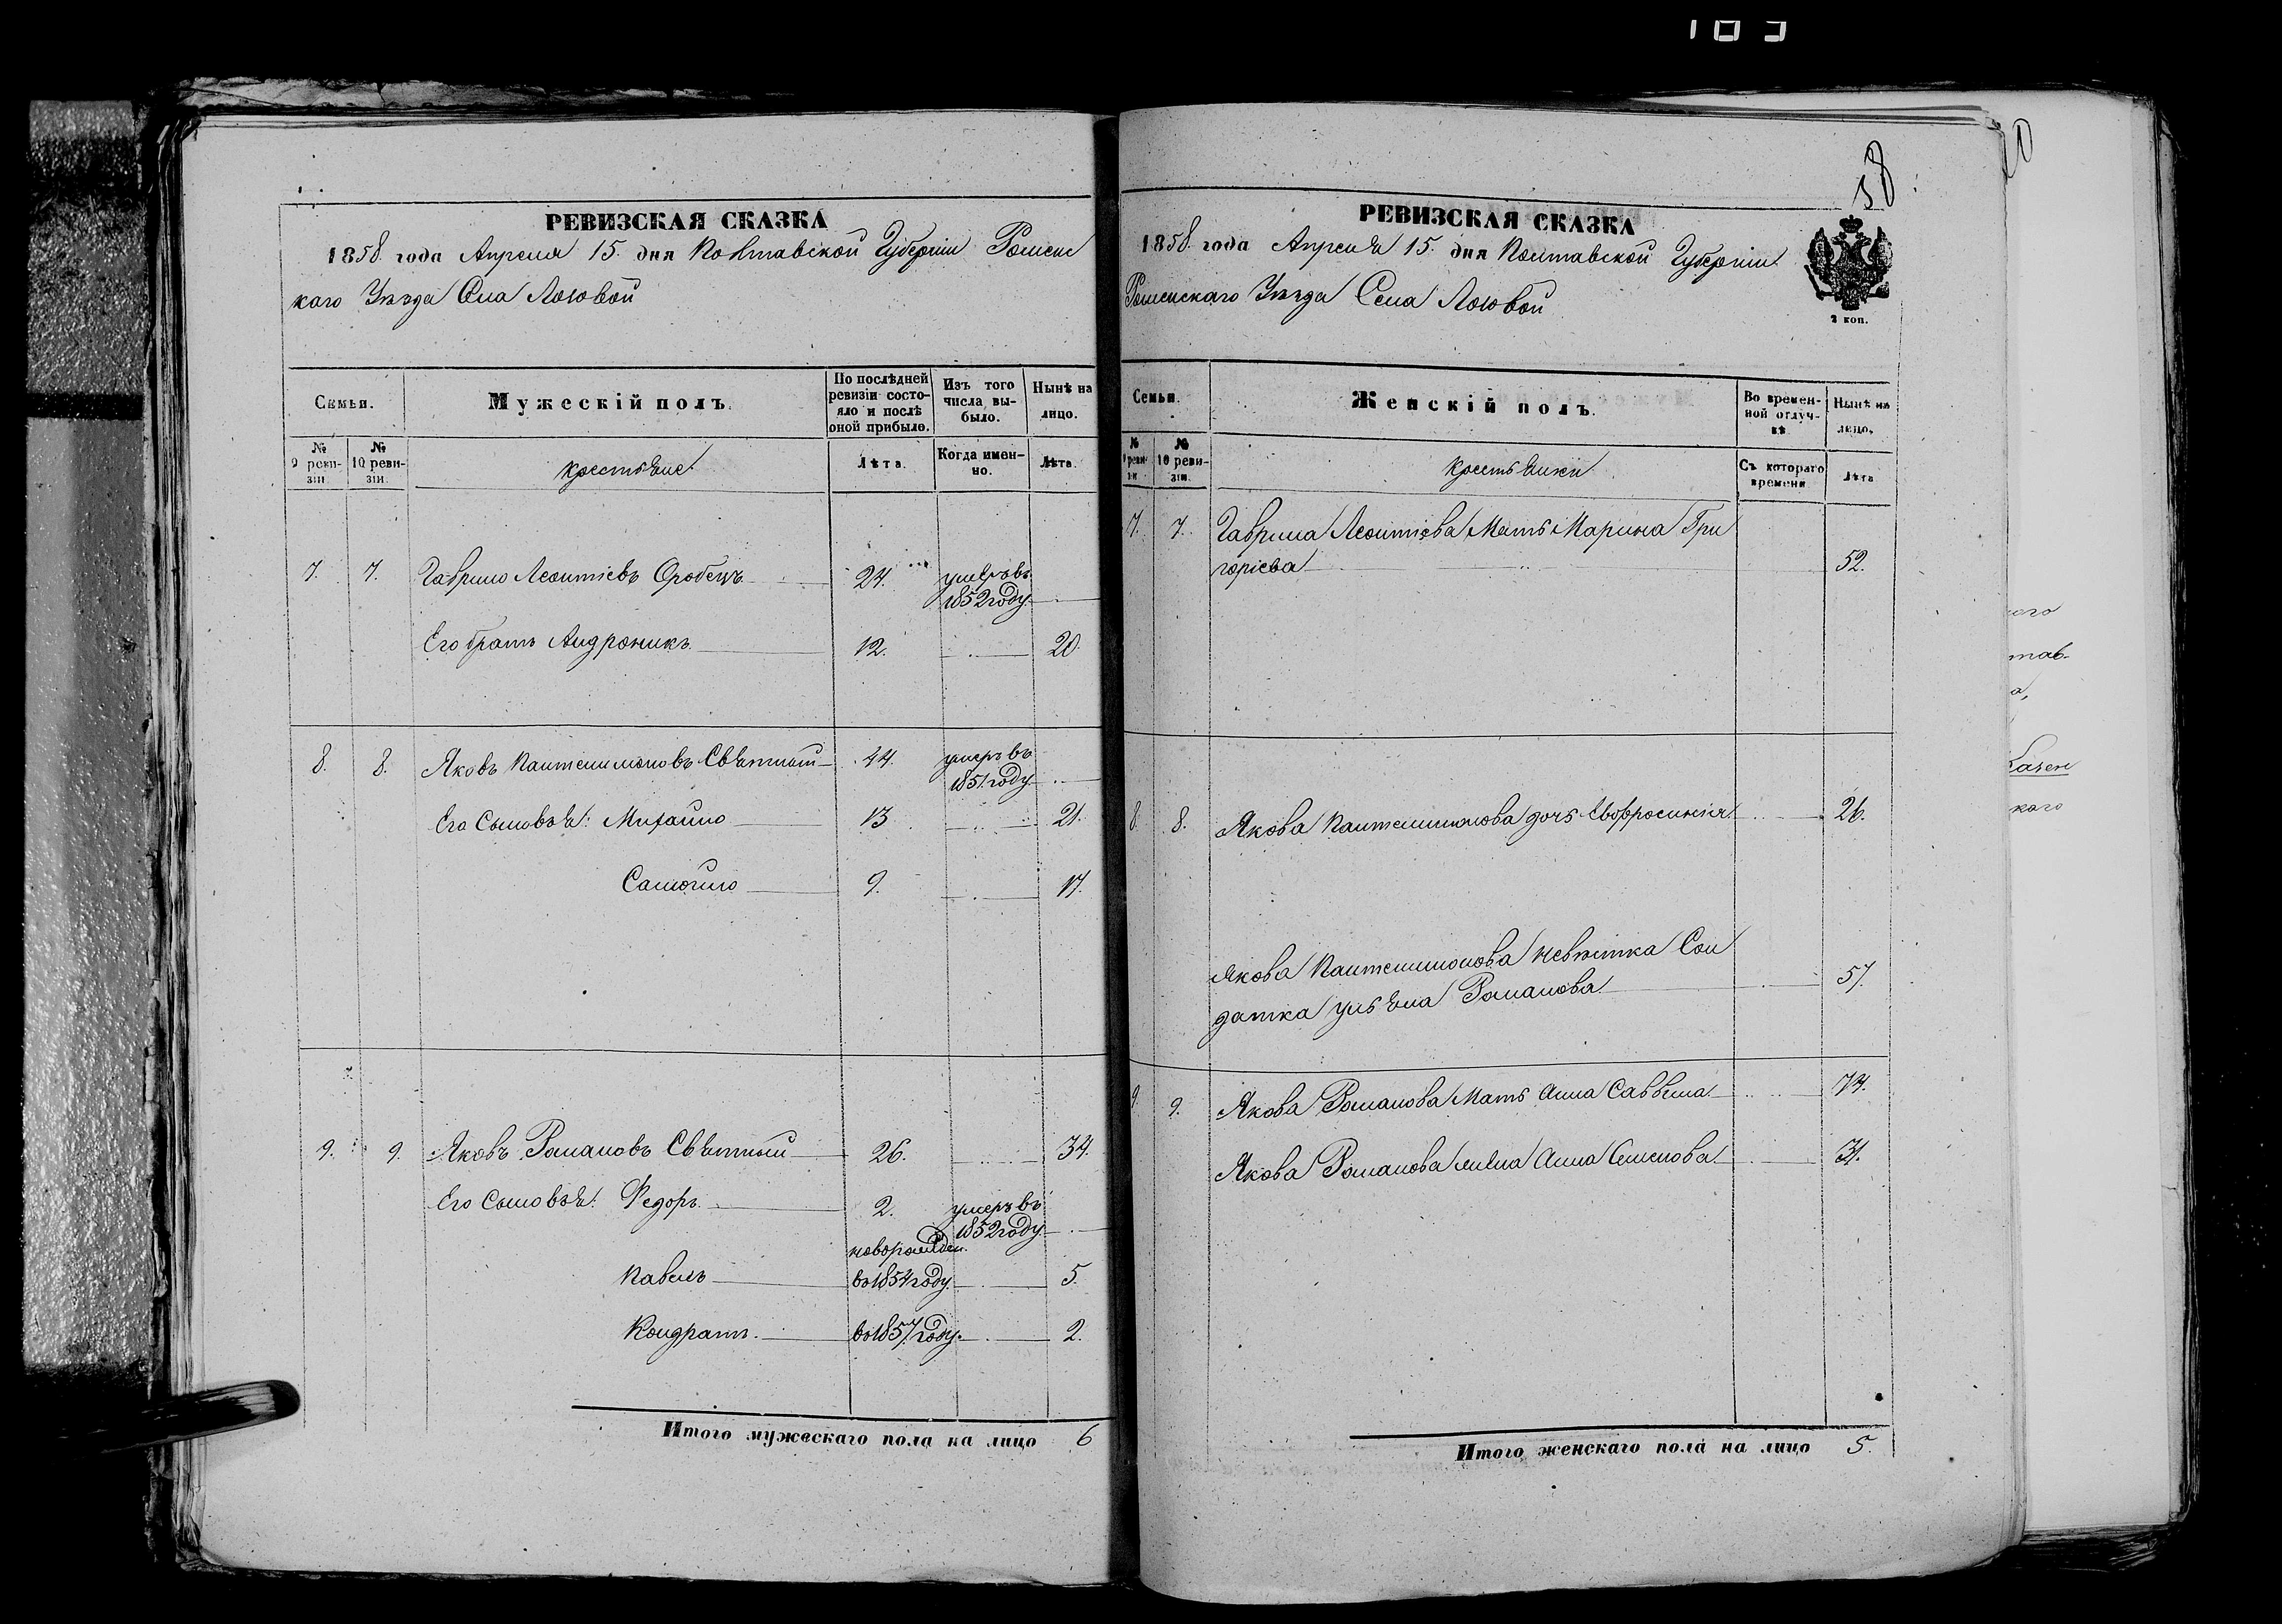 38
РЕВИЗСКАЯ СКАЗКА
1858 года Апреля 15. дня Полтавской Губерніи Роменс
каго Уѣзда Села Логовой
Семьи.
Мужескій полъ.
По послѣдней ревизіи состояло и послѣ оной прибыло.
Изъ того числа выбыло.
Нынѣ на лицо.
№ 9 ревизіи
№ 10 ревизіи.
крестьяне
Лѣта.
Когда именно.
Лѣта.
7. 7. Гаврило Леонтіевъ Оробецъ 24. умеръ въ
1852 году
Его братъ Андроникъ 12. 20.
8. 8. Яковъ Пантелимоновъ Святный 44. умеръ въ
1851 году
Его Сыновья: Михайло 13 21.
Самойло 9. 17.
9. 9. Яковъ Романовъ Святный 26. 34.
Его Сыновья: Федоръ 2. умеръ въ
1852 году
новорожден.
Павелъ въ 1854 году 5.
Кондратъ въ 1857 году. 2.
Итого мужескаго пола на лицо 6
РЕВИЗСКАЯ СКАЗКА
1858 года Апреля 15. дня Полтавской Губерніи
Роменскаго Уѣзда Села Логовой
2 коп.
Семьи.
Женскій полъ.
Во временной отлучкѣ
Нынѣ на лицо.
№ 9 ревизіи
№ 10 ревизіи.
крестьянки
Съ котораго времени
Лѣта
7. 7. Гаврила Леонтіева Мать Марина Гри
горіева 52.
8. 8. Якова Пантелимонова дочь Евфросинія 26.
Якова Пантелимонова невѣстка Сол
датка Ульяна Романова 57.
9. 9. Якова Романова Мать Анна Саввина 74.
Якова Романова жена Анна Семенова 31.
Итого женскаго пола на лицо 5.